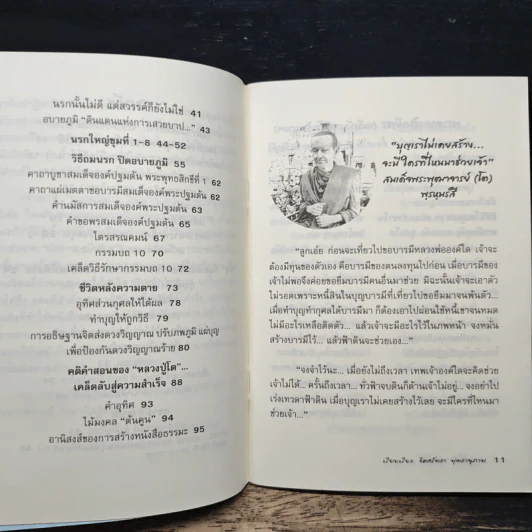 นรกนั้นไม่ดี แต่สวรรค์ก็ยังไม่ใช่ 41
อบายภูมิ "ดินแดนแห่งการเสวยบาป..." 43
นรกใหญ่ขุมที่ 1-8 44-52
วิธีถมนรก ปิดอบายภูมิ 55
คาถาบูชาสมเด็จองค์ปฐมต้น พระพุทธสิกขีที่ 1 62
คาถาแผ่เมตตาขอบารมีสมเด็จองค์พระปฐมต้น 62
คำนมัสการสมเด็จองค์พระปฐมต้น 63
คำขอพรสมเด็จองค์ปฐมต้น 65
ไตรสรณคมน์ 67
กรรมบถ 10 70
เคล็ดวิธีรักษากรรมบถ 10 72
ชีวิตหลังความตาย 73
อุทิศส่วนกุศลให้ได้ผล 78
ทำบุญให้ถูกวิธี 79
การอธิษฐานจิตส่งดวงวิญญาณ ปรับภพภูมิ แผ่บุญ
เพื่อป้องกันดวงวิญญาณร้าย 80
คติคำสอนของ "หลวงปู่โต"...
เคล็ดลับสู่ความสำเร็จ 88
คำอุทิศ 93
ไม้มงคล "ต้นคูน" 94
อานิสงส์ของการสร้างหนังสือธรรมะ 95
"บุญเราไม่เคยสร้าง...
จะมีใครที่ไหนมาช่วยเจ้า"
สมเด็จพระพุฒาจารย์ (โต)
พรหมรังสี
"ลูกเอ๋ย ก่อนจะเที่ยวไปขอบารมีหลวงพ่อองค์ใด เจ้าจะ
ต้องมีทุนของตัวเอง คือบารมีของตนลงทุนไปก่อน เมื่อบารมีของ
เจ้าไม่พอจึงค่อยขอยืมบารมีคนอื่นมาช่วย มิฉะนั้นเจ้าจะเอาตัว
ไม่รอดเพราะหนี้สินในบุญบารมีที่เที่ยวไปขอยืมมาจนพ้นตัว...
เมื่อทำบุญทำกุศลได้บารมีมา ก็ต้องเอาไปผ่อนใช้หนี้เขาจนหมด
ไม่มีอะไรเหลือติดตัว... แล้วเจ้าจะมีอะไรไว้ในภพหน้า จงหมั่น
สร้างบารมีไว้... แล้วฟ้าดินจะช่วยเอง..."
"จงจำไว้นะ... เมื่อยังไม่ถึงเวลา เทพเจ้าองค์ใดจะคิดช่วย
เจ้าไม่ได้... ครั้นถึงเวลา... ทั่วฟ้าจบดินก็ต้านเจ้าไม่อยู่... จงอย่าไป
เร่งเทวดาฟ้าดิน เมื่อบุญเราไม่เคยสร้างไว้เลย จะมีใครที่ไหนมา
ช่วยเจ้า..."
11